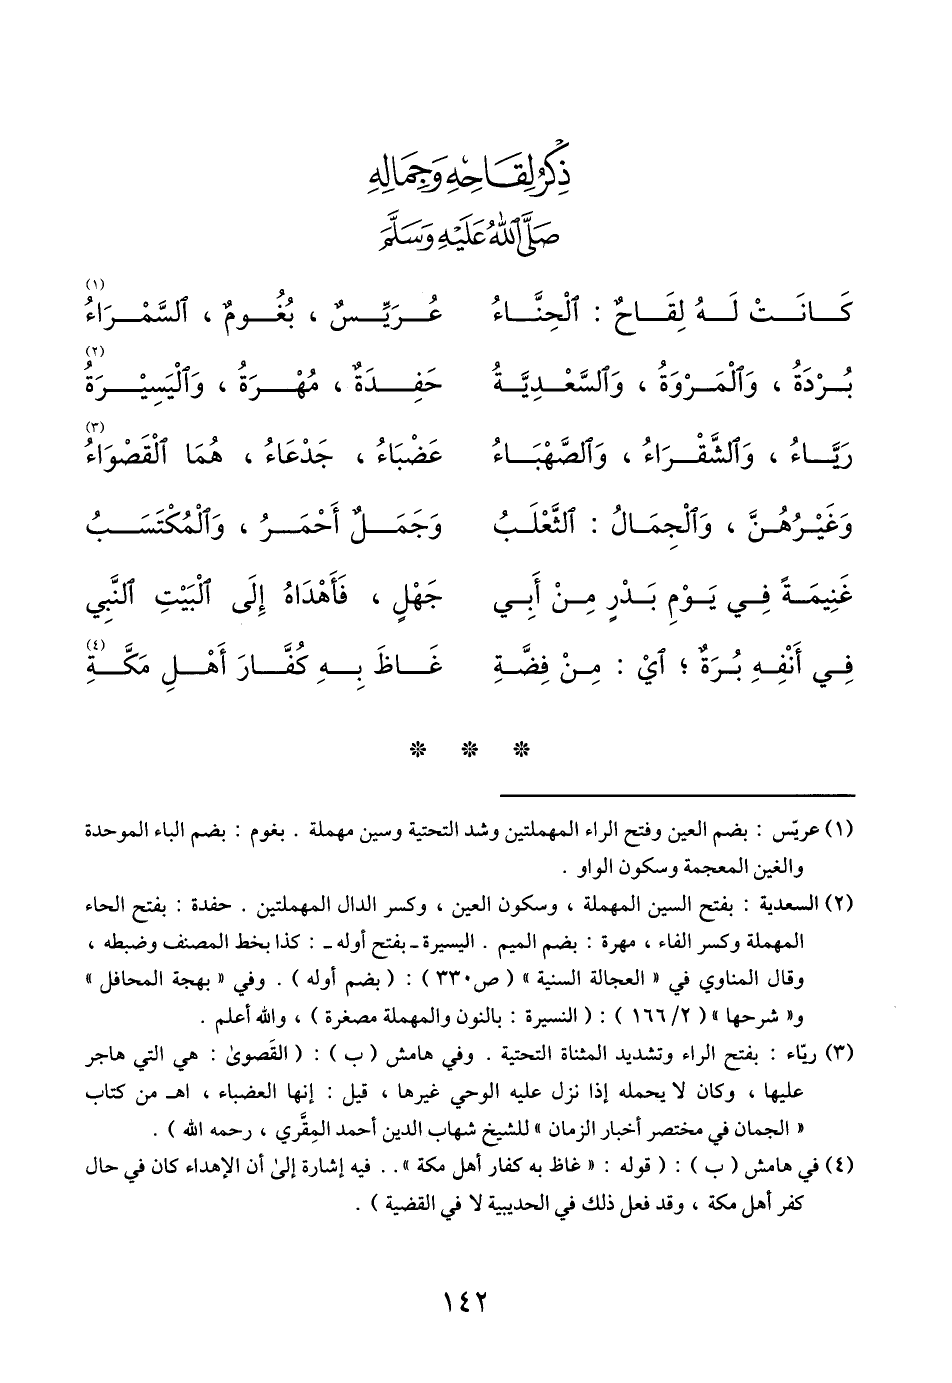 ذِكْرُ لِقَاحِهِ وَجِمَالِهِ
صَلَّى ٱللَّهُ عَلَيْهِ وَسَلَّمَ
كَانَتْ لَهُ لِقَاحٌ : ٱلْحِنَّاءُ عُرَيِّسٌ ، بُغُومٌ ، ٱلسَّمْرَاءُ (١)
بُرْدَةُ ، وَٱلْمَرْوَةُ ، وَٱلسَّعْدِيَّةُ حَفِدَةٌ ، مُهْرَةُ ، وَٱلْيَسِيْرَةُ (٢)
رَيَّاءُ ، وَٱلشَّقْرَاءُ ، وَٱلصَّهْبَاءُ عَضْبَاءُ ، جَدْعَاءُ ، هُمَا ٱلْقَصْوَاءُ (٣)
وَغَيْرُهُنَّ ، وَٱلْجِمَالُ : ٱلثَّعْلَبُ وَجَمَلٌ أَحْمَرُ ، وَٱلْمُكْتَسَبُ
غَنِيمَةً فِي يَوْمِ بَدْرٍ مِنْ أَبِي جَهْلٍ ، فَأَهْدَاهُ إِلَى ٱلْبَيْتِ ٱلنَّبِي
فِي أَنْفِهِ بُرَةٌ ؛ أَيْ : مِنْ فِضَّةِ غَاظَ بِهِ كُفَّارَ أَهْلِ مَكَّةِ (٤)
(١) عريّس : بضم العين وفتح الراء المهملتين وشد التحتية وسين مهملة . بغوم : بضم الباء الموحدة
والغين المعجمة وسكون الواو .
(٢) السعدية : بفتح السين المهملة ، وسكون العين ، وكسر الدال المهملتين . حفدة : بفتح الحاء
المهملة وكسر الفاء ، مهرة : بضم الميم . اليسيرة ـ بفتح أوله ـ : كذا بخط المصنف وضبطه ،
وقال المناوي في « العجالة السنية » ( ص٣٣٠ ) : ( بضم أوله ) . وفي « بهجة المحافل »
و« شرحها » ( ٢/ ١٦٦ ) : ( النسيرة : بالنون والمهملة مصغرة ) ، والله أعلم .
(٣) ريّاء : بفتح الراء وتشديد المثناة التحتية . وفي هامش ( ب ) : ( القَصوىٰ : هي التي هاجر
عليها ، وكان لا يحمله إذا نزل عليه الوحي غيرها ، قيل : إنها العضباء ، اهـ من كتاب
« الجمان في مختصر أخبار الزمان » للشيخ شهاب الدين أحمد المِقَّري ، رحمه الله ) .
(٤) في هامش ( ب ) : ( قوله : « غاظ به كفار أهل مكة ».. فيه إشارة إلىٰ أن الإهداء كان في حال
كفر أهل مكة ، وقد فعل ذلك في الحديبية لا في القضية ) .
١٤٢